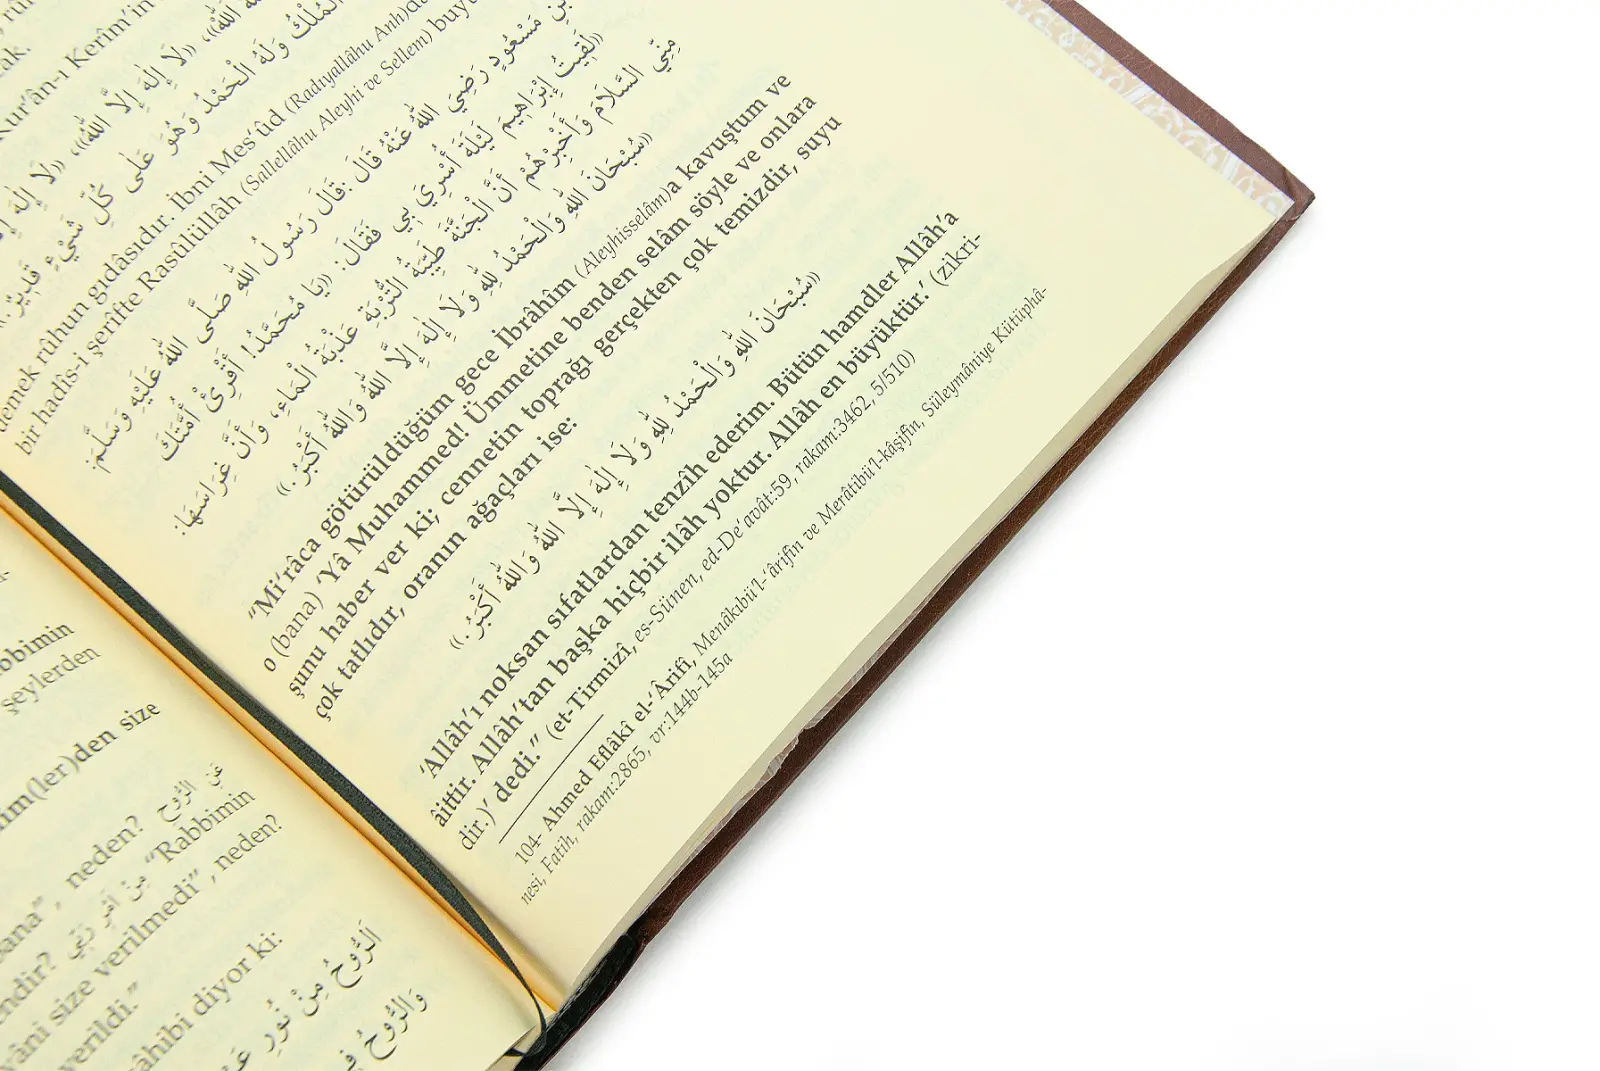 Kur'ân-ı Kerîm'in
الْمُلْكُ وَلَهُ الْحَمْدُ وَهُوَ عَلَى كُلِّ شَيْءٍ قَدِيرٌ.»
demek rûhun gıdâsıdır. İbni Mes'ûd (Radıyallâhu Anh)dan
bir hadîs-i şerîfte Rasûlüllâh (Sallellâhu Aleyhi ve Sellem)
بْنِ مَسْعُودٍ رَضِيَ اللهُ عَنْهُ قَالَ: قَالَ رَسُولُ اللهِ صَلَّى اللهُ عَلَيْهِ وَسَلَّمَ:
«لَقِيتُ إِبْرَاهِيمَ لَيْلَةَ أُسْرِيَ بِي فَقَالَ: «يَا مُحَمَّدُ! أَقْرِئْ أُمَّتَكَ
مِنِّي السَّلَامَ وَأَخْبِرْهُمْ أَنَّ الْجَنَّةَ طَيِّبَةُ التُّرْبَةِ عَذْبَةُ الْمَاءِ، وَأَنَّ غِرَاسَهَا:
«سُبْحَانَ اللهِ وَالْحَمْدُ لِلهِ وَلَا إِلَهَ إِلَّا اللهُ وَاللهُ أَكْبَرُ.»
"Mi'râca götürüldüğüm gece İbrâhîm (Aleyhisselâm)a kavuştum ve
o (bana) 'Yâ Muhammed! Ümmetine benden selâm söyle ve onlara
şunu haber ver ki; cennetin toprağı gerçekten çok temizdir, suyu
çok tatlıdır, oranın ağaçları ise:
«سُبْحَانَ اللهِ وَالْحَمْدُ لِلهِ وَلَا إِلَهَ إِلَّا اللهُ وَاللهُ أَكْبَرُ.»
'Allâh'ı noksan sıfatlardan tenzîh ederim. Bütün hamdler Allâh'a
âittir. Allâh'tan başka hiçbir ilâh yoktur. Allâh en büyüktür.' (zikri-
dir.)' dedi." (et-Tirmizî, es-Sünen, ed-De'avât:59, rakam:3462, 5/510)
104- Ahmed Eflâkî el-'Ârifî, Menâkıbü'l-'ârifîn ve Merâtibü'l-kâşifîn, Süleymâniye Kütüphâ-
nesi, Fatih, rakam:2865, vr:144b-145a
şeylerden
den size
عَنِ الرُّوحِ
neden?
مِنْ أَمْرِ رَبِّي "Rabbimin
size verilmedi", neden?
verildi."
sâhibi diyor ki:
اَلرُّوحُ مِنْ نُورِ
وَالرُّوحُ